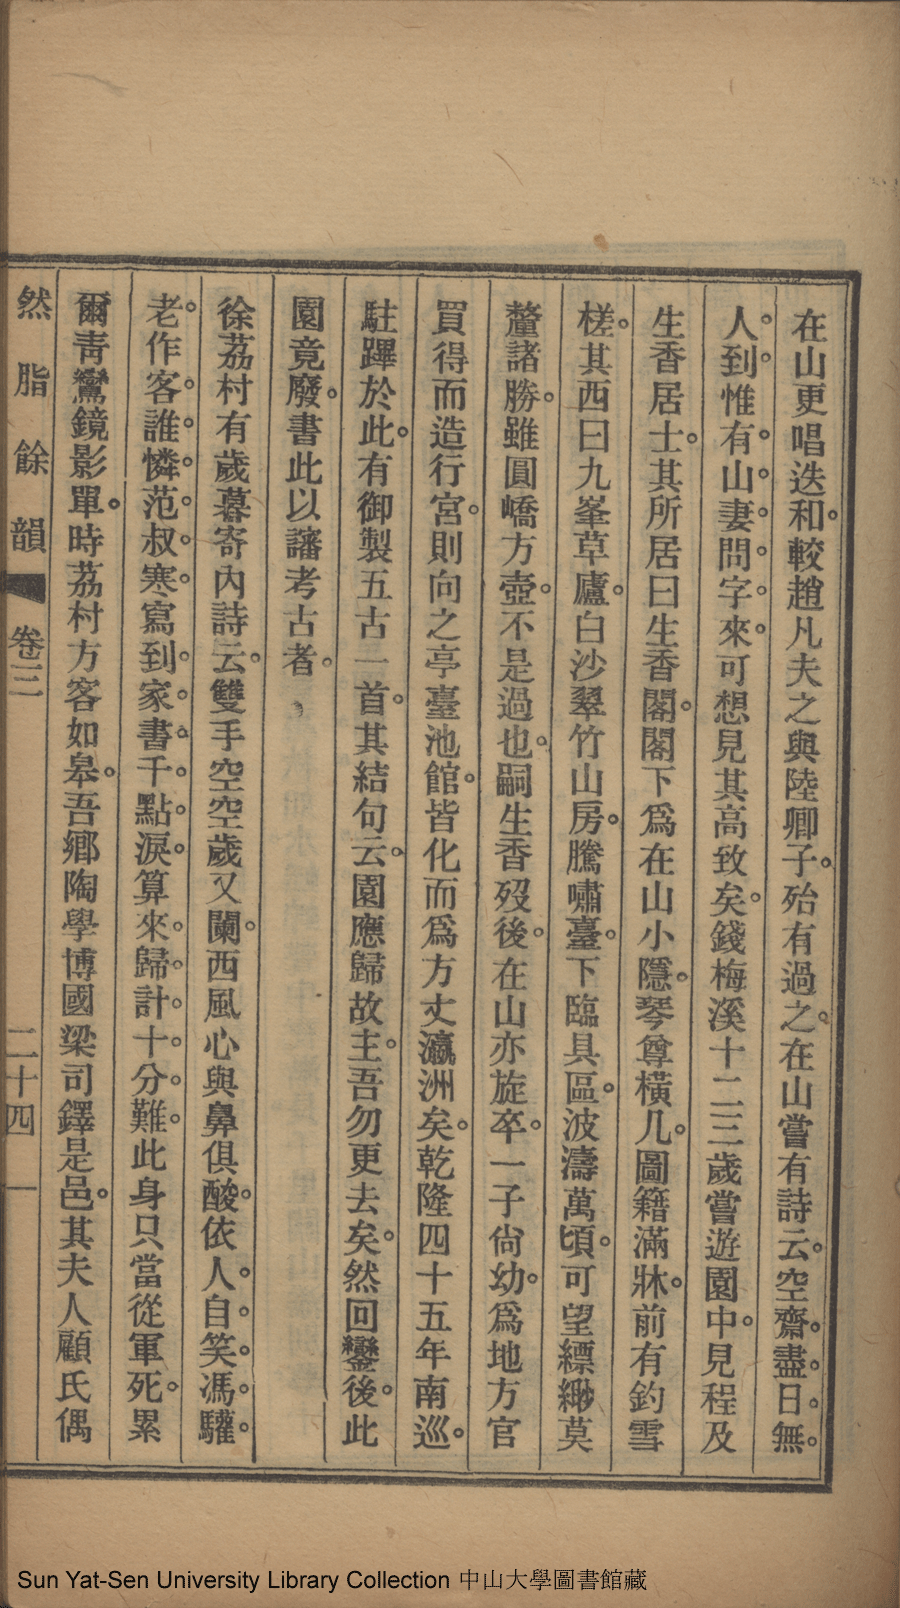 在山更唱迭和。較趙凡夫之與陸卿子。殆有過之。在山嘗有詩云。空齋。盡。日。無。
人。到。惟有。山。妻。問。字。來。可想見其高致矣。錢梅溪十二三歲嘗遊園中。見程及
生香居士。其所居曰生香閣。閣下爲在山小隱。琴尊橫几。圖籍滿牀。前有釣雪
槎。其西曰九峯草廬。白沙翠竹山房。騰嘯臺。下臨具區。波濤萬頃。可望縹緲莫
釐諸勝。雖圓嶠方壺。不是過也。嗣生香歿後。在山亦旋卒。一子尙幼。爲地方官
買得而造行宮。則向之亭臺池館。皆化而爲方丈瀛洲矣。乾隆四十五年南巡。
駐蹕於此。有御製五古一首。其結句云。園應歸故主。吾勿更去矣。然回鑾後。此
園竟廢。書此以讅考古者。
徐荔村有歲暮寄內詩云。雙手空空歲又闌。西風心與鼻俱酸。依人。自。笑。馮。驩。
老。作客。誰。憐。范。叔。寒。寫到。家。書。千。點。淚。算來。歸。計。十。分。難。此身只當從軍死。累
爾靑鸞鏡影單。時荔村方客如皋。吾鄉陶學博國梁司鐸是邑。其夫人顧氏偶
然脂餘韻 卷三 二十四
Sun Yat-Sen University Library Collection 中山大學圖書館藏